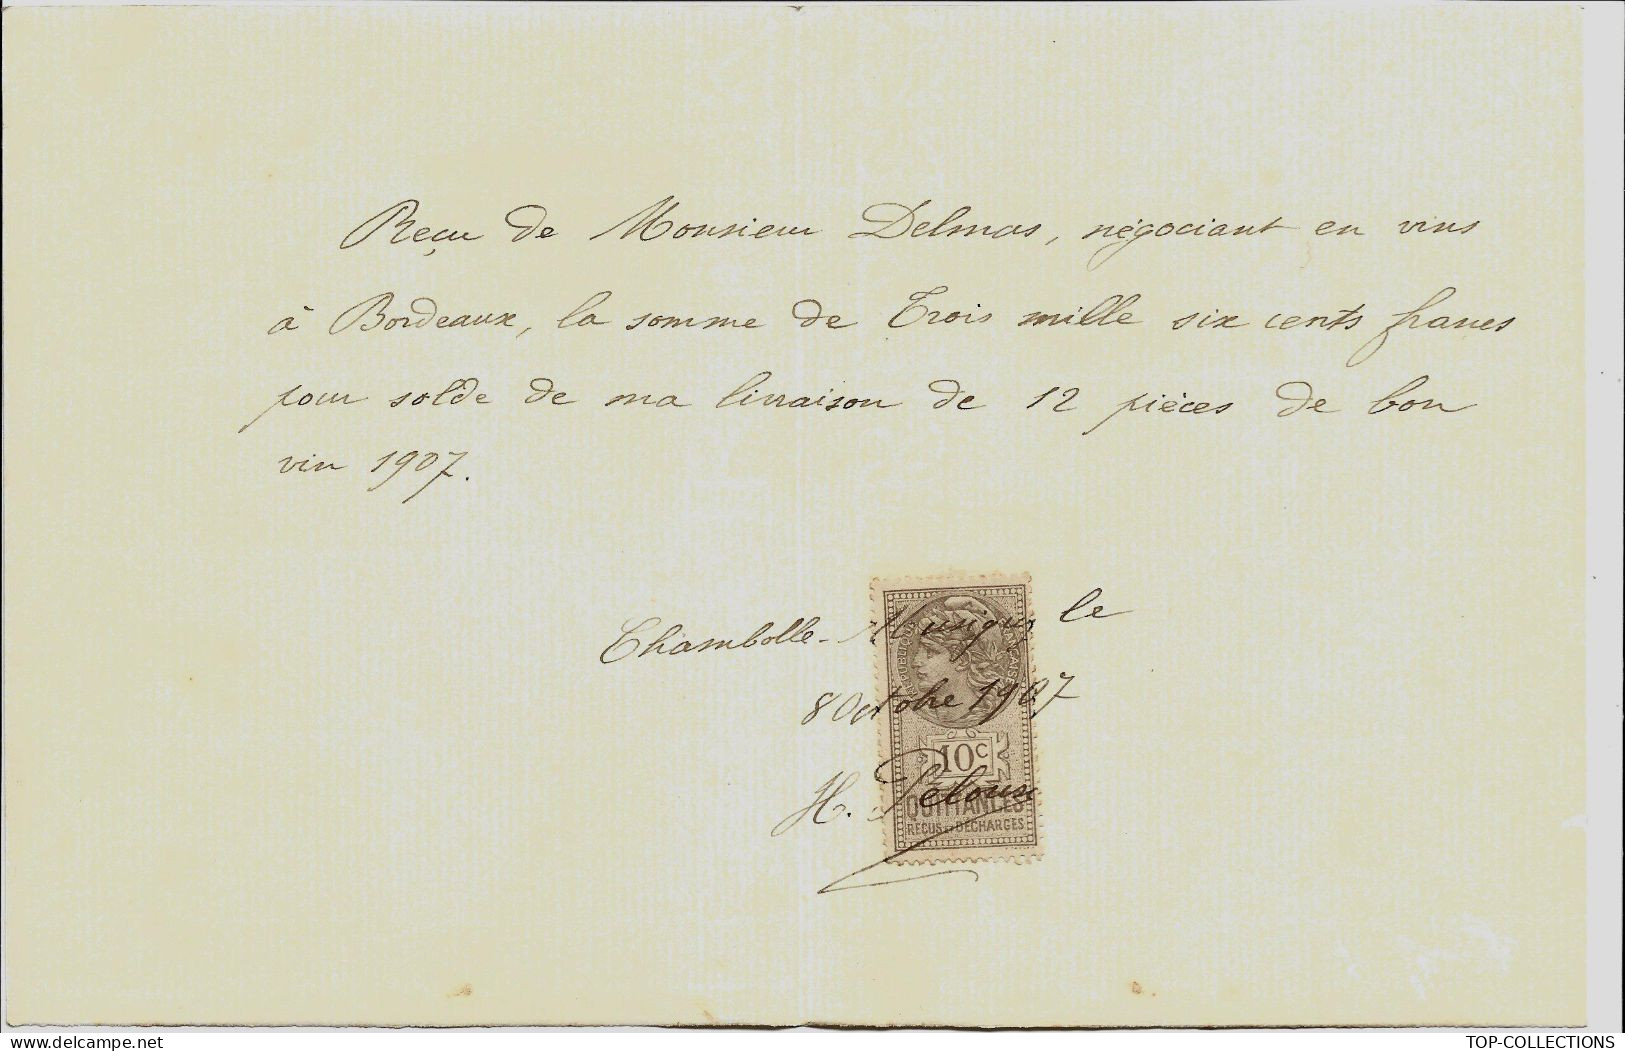 Reçu de Monsieur Delmas, négociant en vins
à Bordeaux, la somme de Trois mille six cents francs
pour solde de ma livraison de 12 pièces de bon
vin 1907.
Chambolle-Musigny le
8 Octobre 1907
H.
REPUBLIQUE FRANÇAISE
10c
QUITTANCES
REÇUS ET DÉCHARGES
www.delcampe.net
TOP-COLLECTIONS